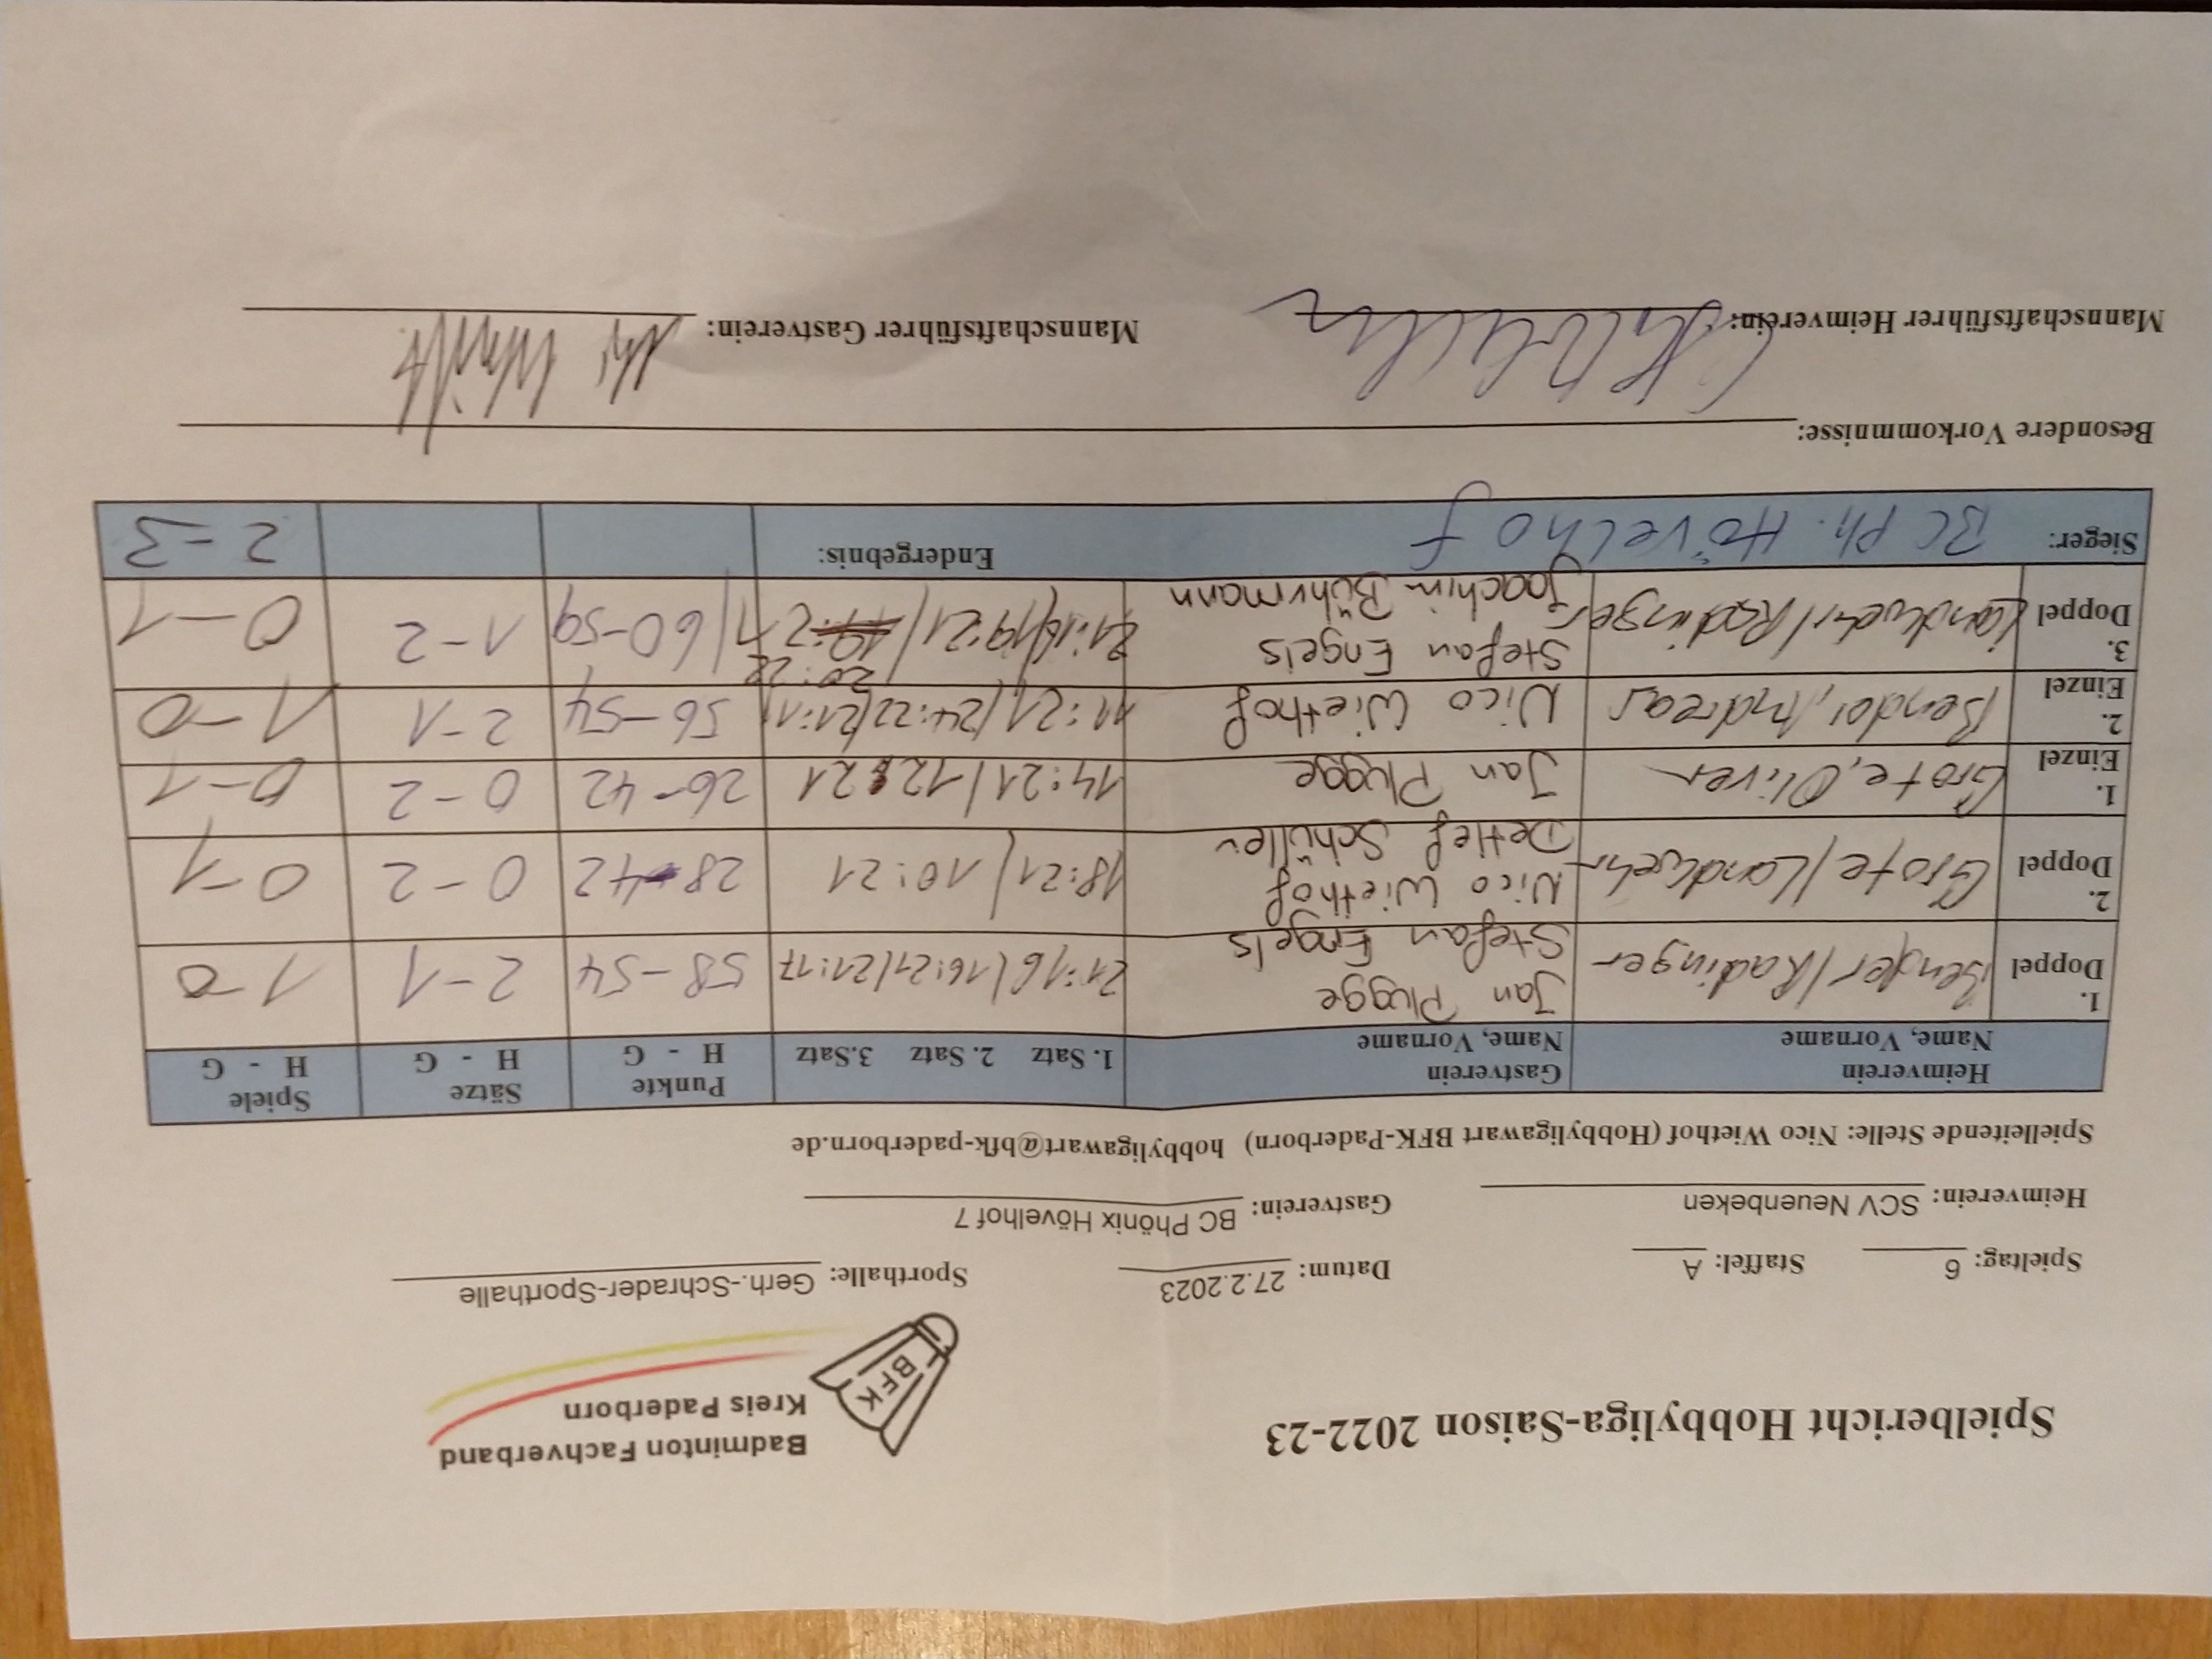 Spielbericht Hobbyliga-Saison 2022-23
BFK
Badminton Fachverband
Kreis Paderborn
Spieltag: 6 Staffel: A Datum: 27.2.2023 Sporthalle: Gerh.-Schrader-Sporthalle
Heimverein: SCV Neuenbeken Gastverein: BC Phönix Hövelhof 7
Spielleitende Stelle: Nico Wiethof (Hobbyligawart BFK-Paderborn) hobbyligawart@bfk-paderborn.de
Heimverein Gastverein Punkte Sätze Spiele
Name, Vorname Name, Vorname 1. Satz 2. Satz 3.Satz H - G H - G H - G
1. Jan Plugge
Doppel Bender/Radinger Stefan Engels 21:16/16:21/21:17 58-54 2-1 1-0
2. Nico Wiethof
Doppel Grote/Landwehr Detlef Schüller 18:21/10:21 28-42 0-2 0-1
1.
Einzel Grote, Oliver Jan Plugge 14:21/12:21 26-42 0-2 0-1
2.
Einzel Bender, Andreas Nico Wiethof 11:21/24:22/21:11 56-54 2-1 1-0
3. Stefan Engels 20:22
Doppel Landwehr/Radinger Joachim Bührmann 21:16/19:21/ 60-59 1-2 0-1
Sieger: BC Ph. Hövelhof Endergebnis: 2-3
Besondere Vorkommnisse:
Mannschaftsführer Heimverein: Mannschaftsführer Gastverein: